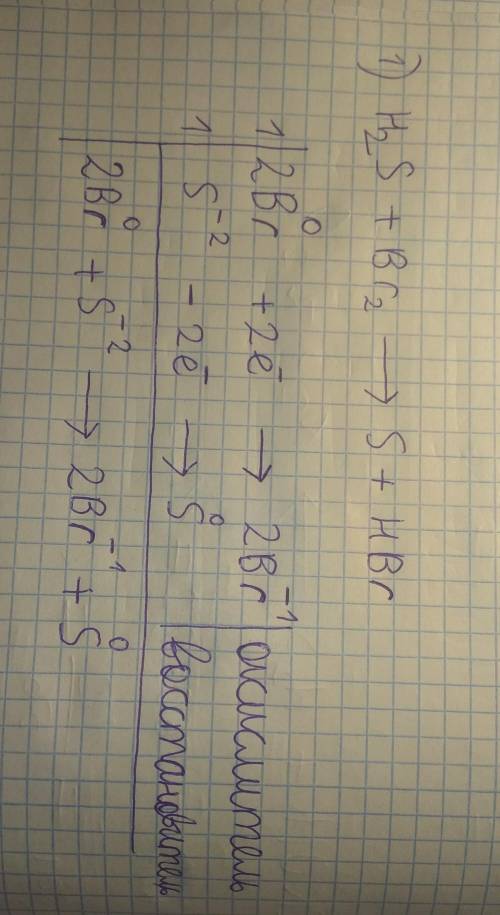 1) H₂S + Br₂ → S + HBr
1 | 2Br⁰ + 2e⁻ → 2Br⁻¹ | окислитель
1 | S⁻² - 2e⁻ → S⁰ | восстановитель
2Br⁰ + S⁻² → 2Br⁻¹ + S⁰